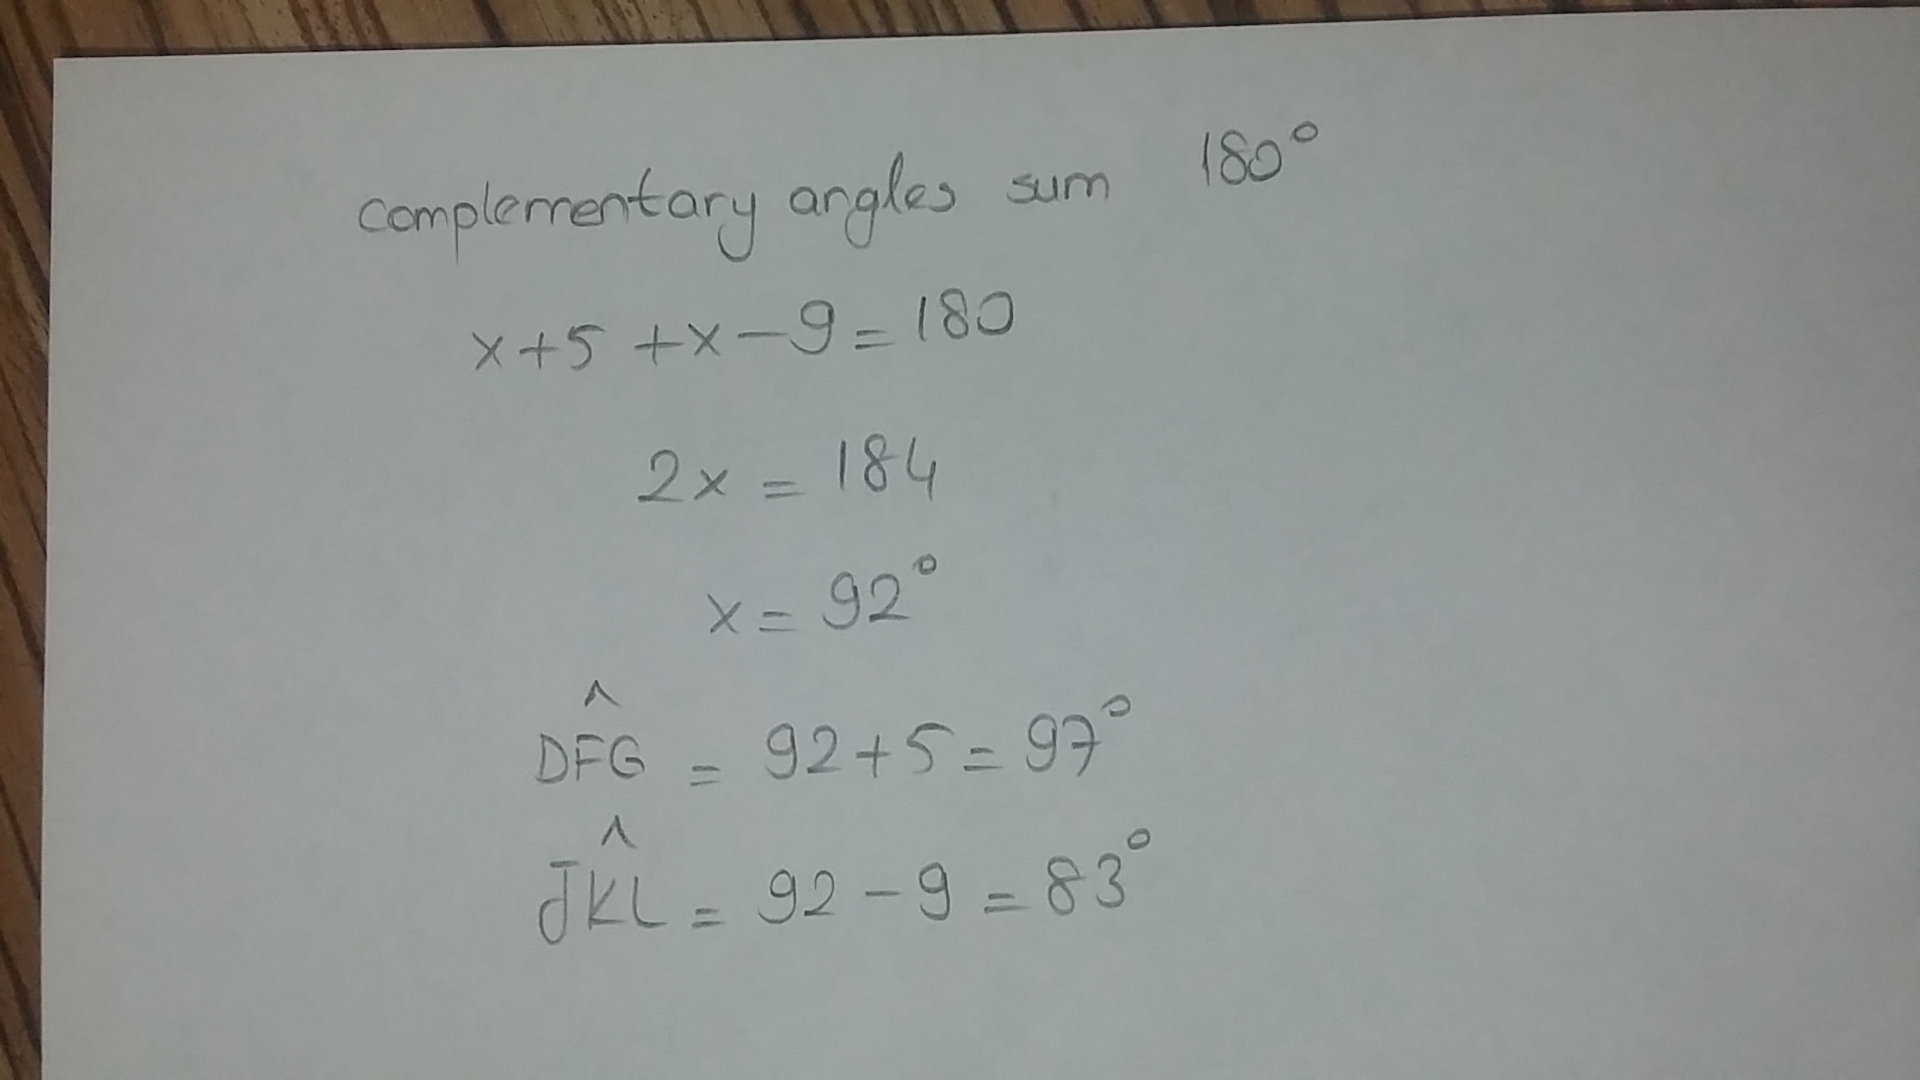 complementary angles sum 180°
x+5 +x-9=180
2x = 184
x = 92°
^
DFG = 92+5 = 97°
^
JKL = 92 - 9 = 83°